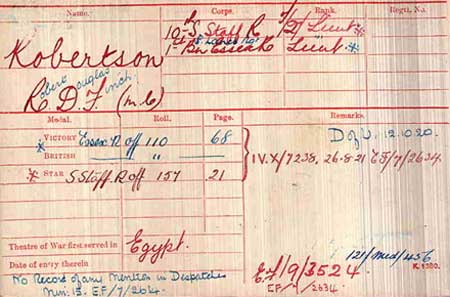 Name. Corps. Rank. Regtl. No.
10th S. Staff R T/2/Lieut *
1st Bn Essex R Lieut *
Robertson
Robert Douglas Finch
R. D. F. (M.C)
Medal. Roll. Page. Remarks.
* VICTORY Essex R off 110 68 D of U. 12.10.20.
BRITISH " " IV.X/7238. 26.8.21 EF/7/2634.
* STAR S Staff. R off 157 21
Theatre of War first served in Egypt.
Date of entry therein 121/Med/456
K. 1380.
No Record of any Mention in Despatches E.f/9/3524
Min: 15. EF/7/2634. EF/ " /2634